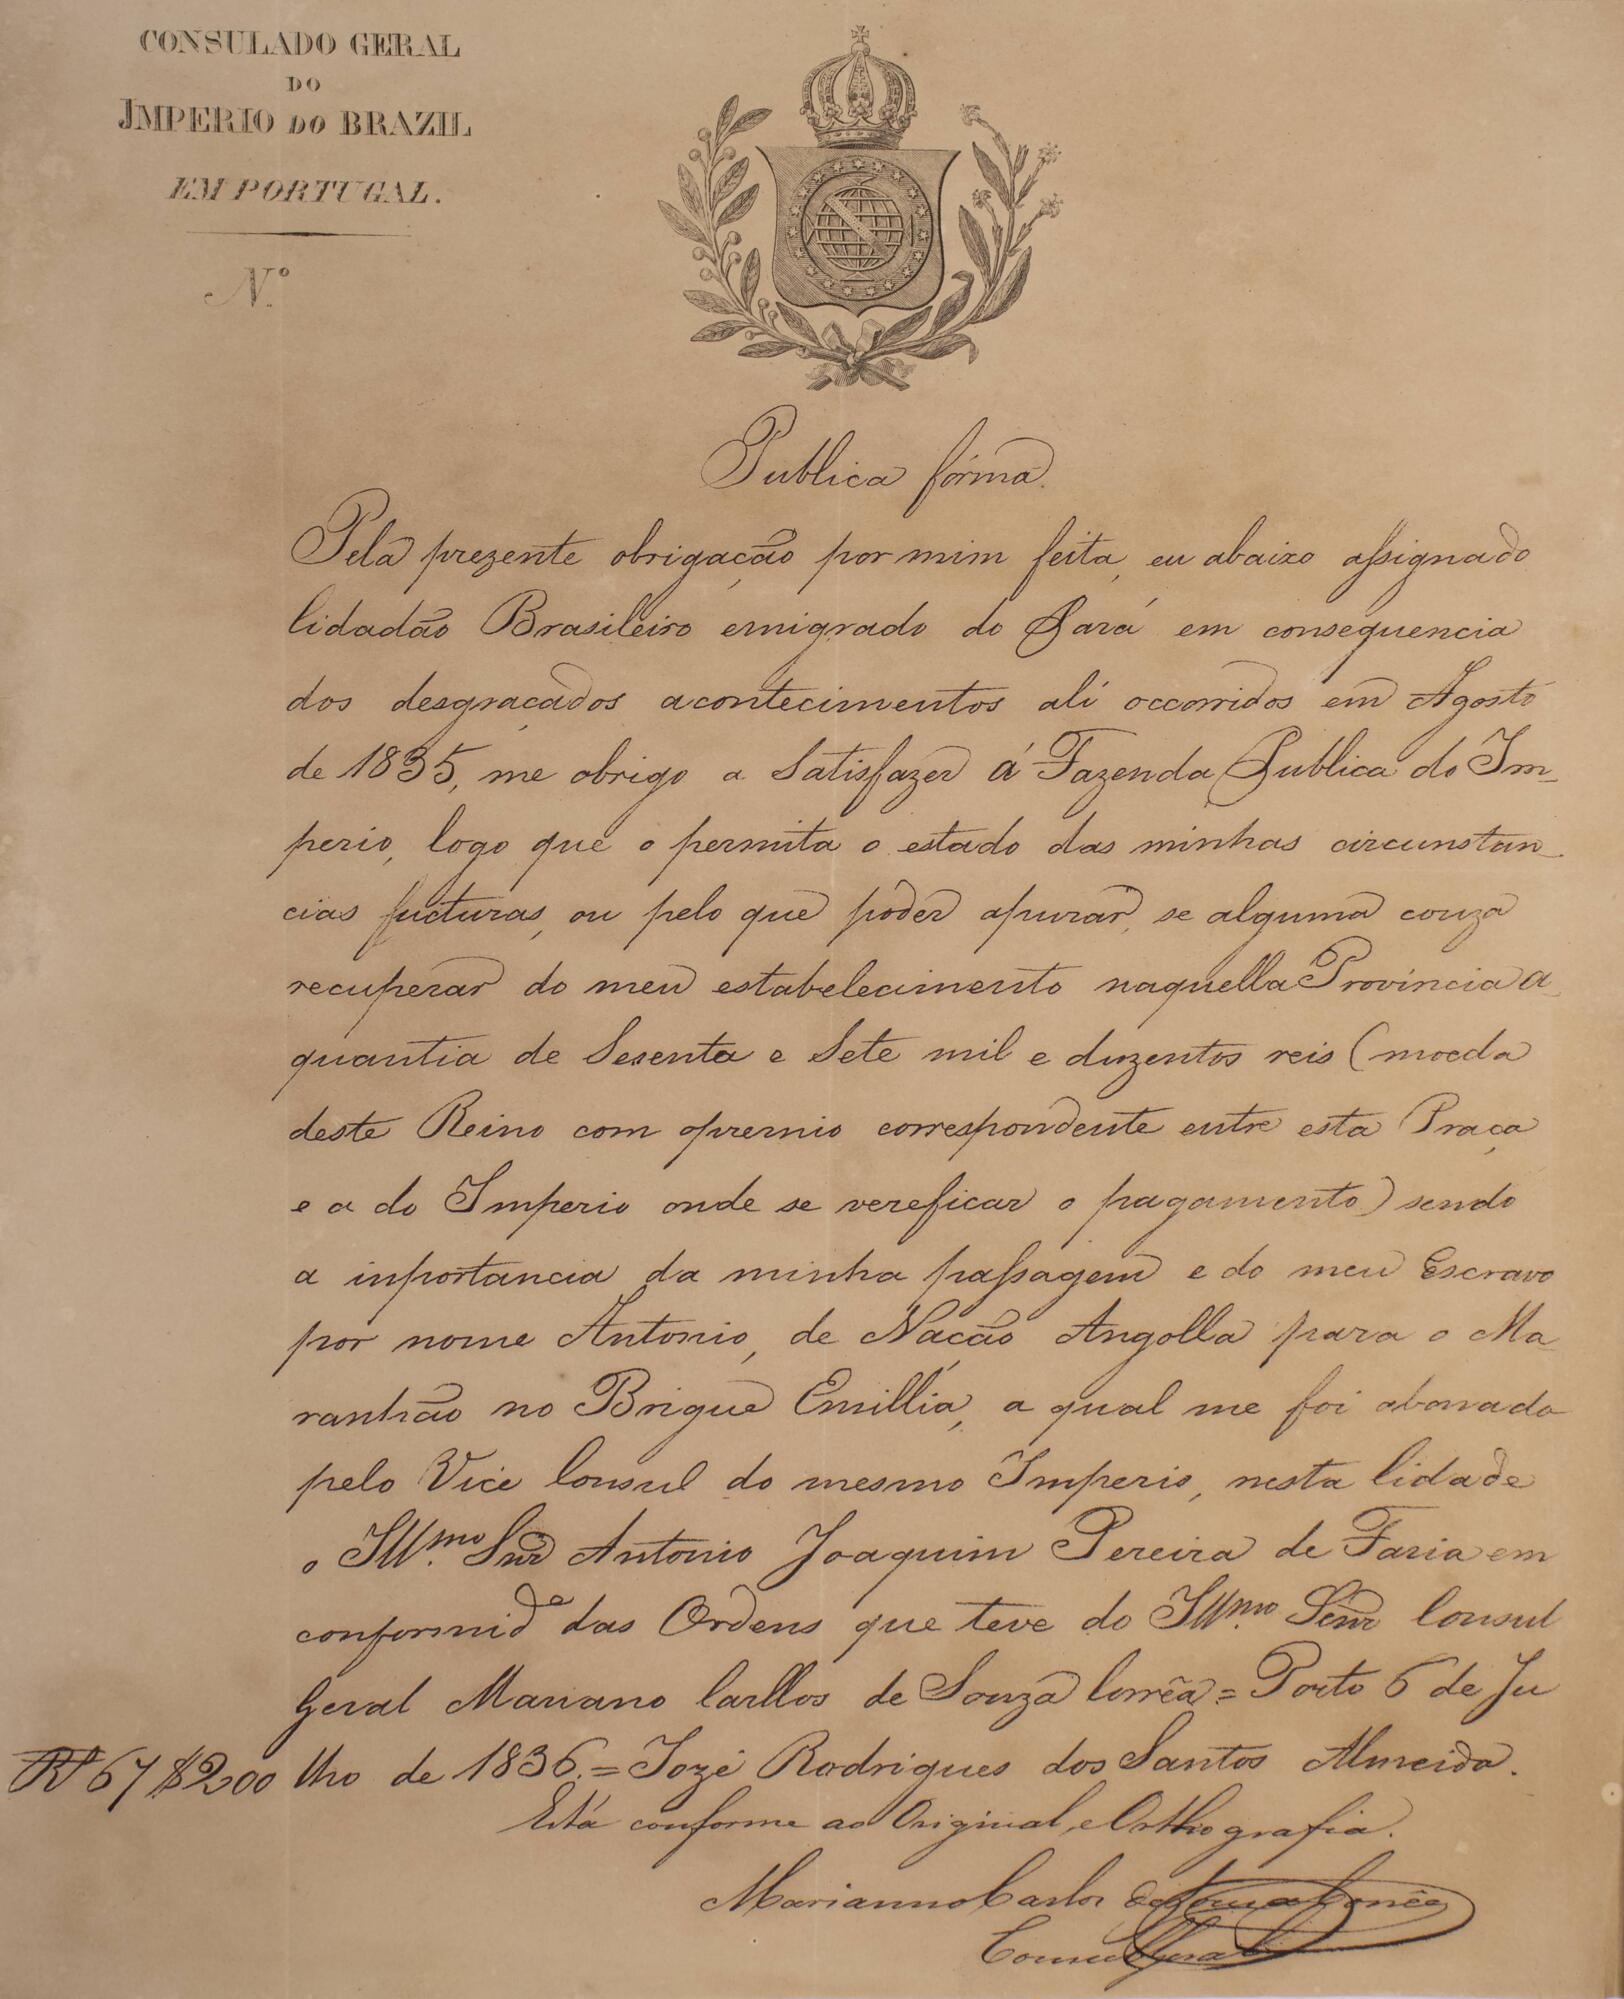 CONSULADO GERAL
DO
IMPERIO DO BRAZIL
EM PORTUGAL.
N.º
Publica fórma.
Pela prezente obrigação por mim feita, eu abaixo assignado
Cidadão Brasileiro emigrado do Pará em consequencia
dos desgraçados acontecimentos ali occorridos em Agosto
de 1835, me obrigo a Satisfazer á Fazenda Publica do Im-
perio, logo que o permita o estado das minhas circunstan-
cias fucturas, ou pelo que podér apurar, se alguma couza
recuperar do meu estabelecimento naquella Provincia a-
quantia de Sesenta e Sete mil e duzentos reis (moeda
deste Reino com opremio correspondente entre esta Praça
e a do Imperio onde se vereficar o pagamento) sendo
a inportancia da minha passagem e do meu Escravo
por nome Antonio, de Nação Angolla para o Ma-
ranhão no Brigue Emillia, a qual me foi abonada
pelo Vice Consul do mesmo Imperio, nesta Cidade
o Ill.mo Snr Antonio Joaquim Pereira de Faria em
conformid.e das Ordens que teve do Ill.mo Senr Consul
Geral Mariano Carllos de Souza Corrêa = Porto 6 de Ju
R.s 67$200 lho de 1836. = Jozé Rodrigues dos Santos Almeida.
Está conforme ao Original, e Orthografia.
Marianno Carlos de Souza Corrêa
Consul Geral